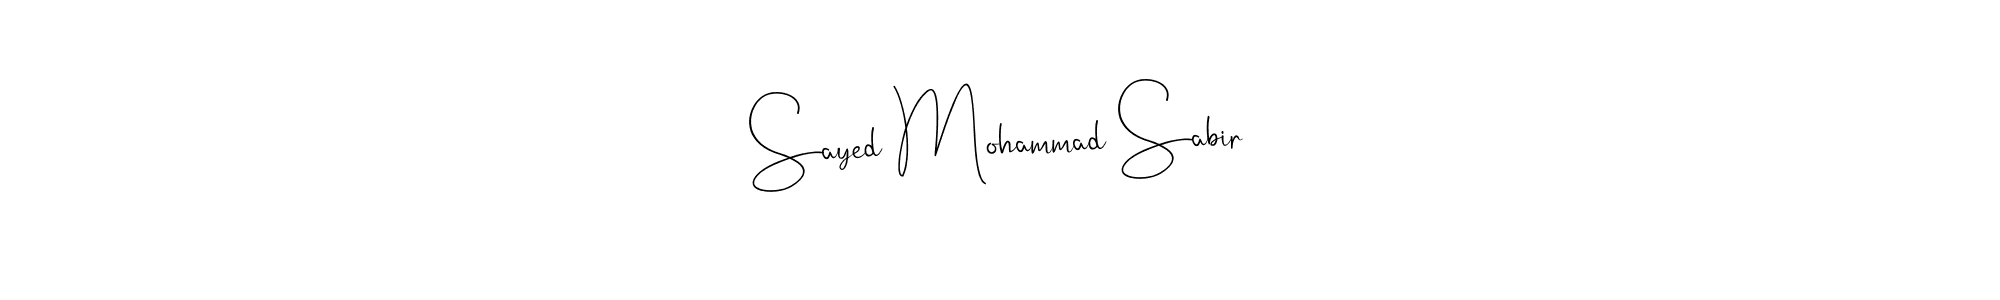 Sayed Mohammad Sabir